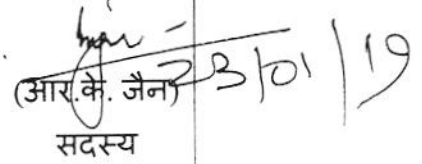 23/01/19
(आर.के. जैन)
सदस्य